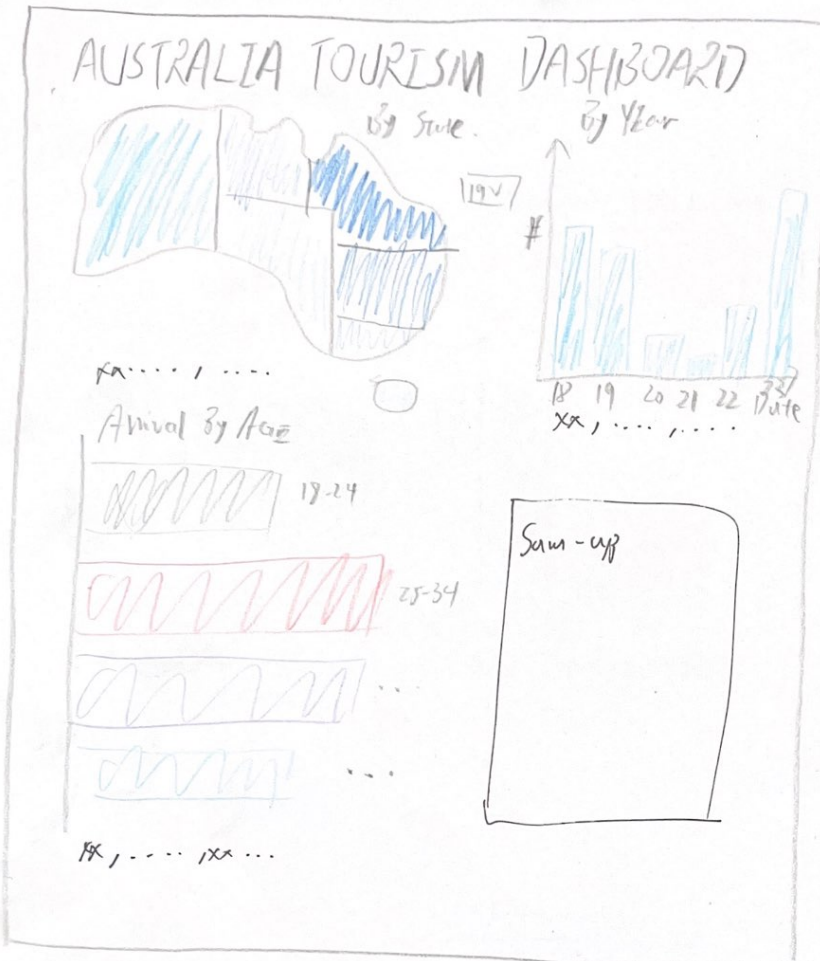 AUSTRALIA TOURISM DASHBOARD
By State.
By Year
19 v
#
18 19 20 21 22 23
Date
xx....., ....
xx, ....,....
Arrival By Age
18-24
25-34
...
...
Sum-up
xx, ....,xx...